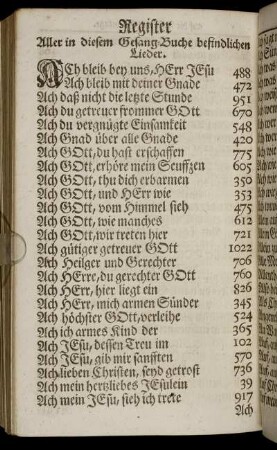 Register
Aller in diesem Gesang-Buche befindlichen
Lieder.
ACh bleib bey uns, HErr JEsu 488
Ach bleib mit deiner Gnade 472
Ach daß nicht die letzte Stunde 951
Ach du getreuer frommer GOtt 670
Ach du vergnügte Einsamkeit 548
Ach Gnad über alle Gnade 420
Ach GOtt, du hast erschaffen 775
Ach GOtt, erhöre mein Seuffzen 605
Ach GOtt, thu dich erbarmen 350
Ach GOtt, und HErr wie 353
Ach GOtt, vom Himmel sieh 475
Ach GOtt, wie manches 612
Ach GOtt, wir treten hier 721
Ach gütiger getreuer GOtt 1022
Ach Heilger und Gerechter 706
Ach HErre, du gerechter GOtt 760
Ach HErr, hier liegt ein 826
Ach HErr, mich armen Sünder 345
Ach höchster GOtt, verleihe 524
Ach ich armes Kind der 365
Ach JEsu, dessen Treu im 102
Ach JEsu, gib mir sanfften 570
Ach lieben Christen, seyd getrost 736
Ach mein hertzliebes JEsulein 39
Ach mein JEsu, sieh ich trete 917
Ach